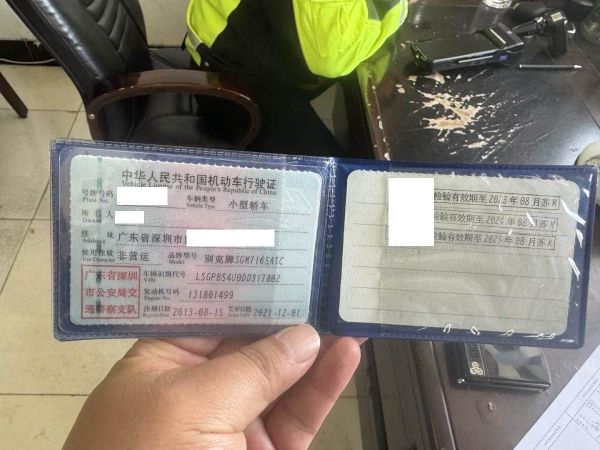 中华人民共和国机动车行驶证
Vehicle License of the People's Republic of China
号牌号码 Plate No. 车辆类型 Vehicle Type 小型轿车
所有人 Owner
住址 Address 广东省深圳市
使用性质 Use Character 非营运 品牌型号 Model 别克牌SGM7165ATC
广东省深圳
市公安局交
通警察支队
车辆识别代号 VIN
发动机号码 Engine No. 131801499
注册日期 Register Date 2013-08-15 发证日期 Issue Date 2021-12-01
检验有效期至 2023年08月苏K
检验有效期至 2024年08月苏K
检验有效期至 2025年08月苏K